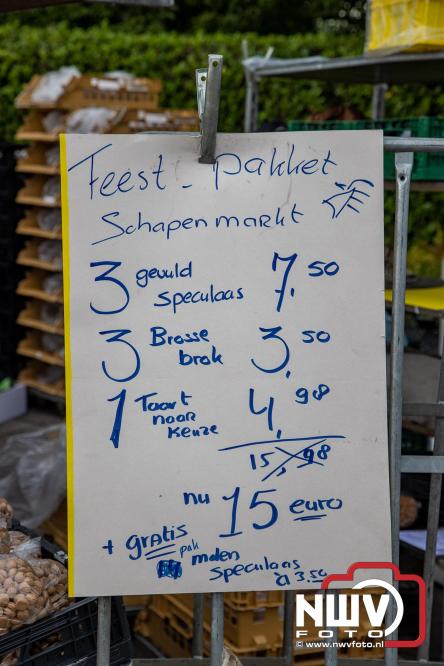 Feest - pakket
Schapenmarkt
3 gevuld speculaas 7,50
3 Brosse brok 3,50
1 Taart naar keuze 4,98
15,98
nu 15 euro
+ gratis pak
molen
speculaas
á 3.50
NWV
FOTO
© www.nwvfoto.nl